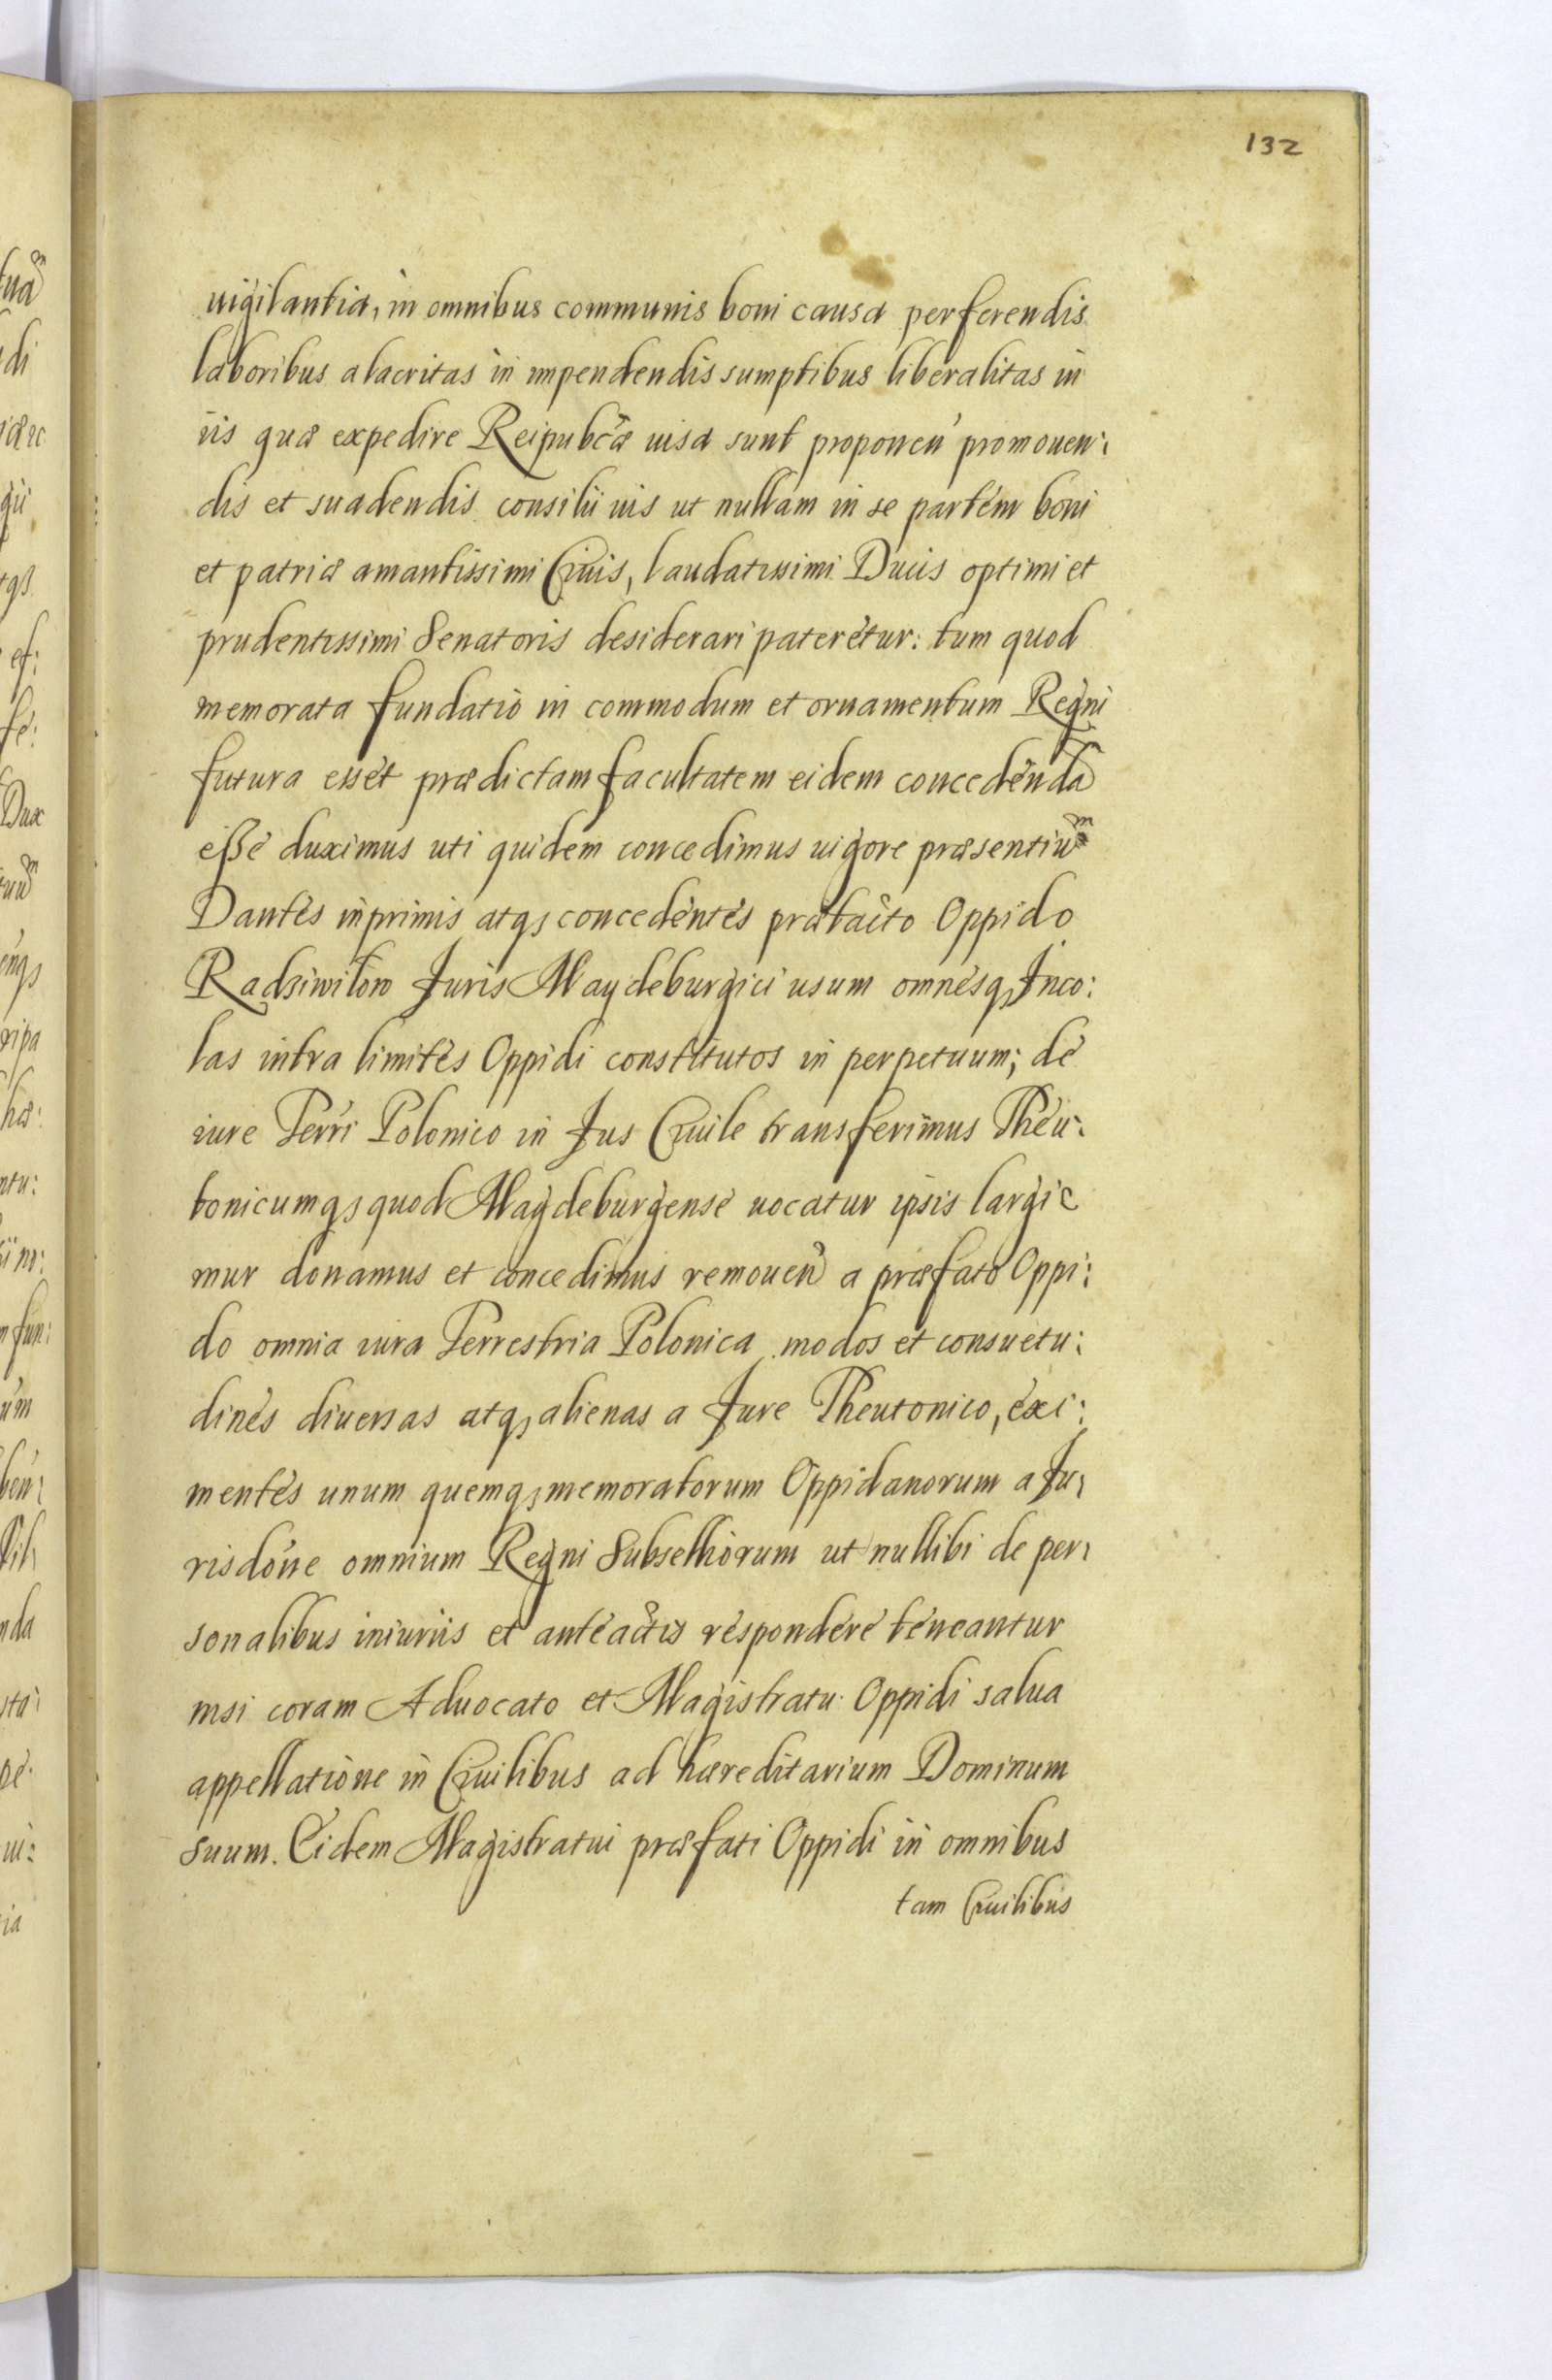 132
uigilantia, in omnibus communis boni causa perferendis
laboribus alacritas in impendendis sumptibus liberalitas in
iis quæ expedire Reipubcæ uisa sunt proponen promouen:
dis et suadendis consilii uis ut nullam in se partem boni
et patriæ amantissimi Ciuis, laudatissimi Ducis optimi et
prudentissimi Senatoris desiderari pateretur: tum quod
memorata fundatio in commodum et ornamentum Regni
futura esset prædictam facultatem eidem concedendam
eße duximus uti quidem concedimus uigore præsentium
Dantes inprimis atqꝫ concedentes præfacto Oppido
Radziwilow Juris Maydeburgici usum omnesqꝫ Inco:
las intra limites Oppidi constitutos in perpetuum; de
iure Terri Polonico in Jus Ciuile transferimus Theu:
tonicumqꝫ quod Magdeburgense uocatur ipsis largi
mur donamus et concedimus remouen a præfato Oppi:
do omnia iura Terrestria Polonica modos et consuetu:
dines diuersas atqꝫ alienas a Jure Theutonico, exi:
mentes unum quemqꝫ memoratorum Oppidanorum a Ju:
risdone omnium Regni Subselliorum ut nullibi de per:
sonalibus iniuriis et anteactis respondere teneantur
nisi coram Aduocato et Magistratu Oppidi salua
appellatione in Ciuilibus ad hæreditarium Dominum
suum. Eidem Magistratui præfati Oppidi in omnibus
tam Ciuilibus